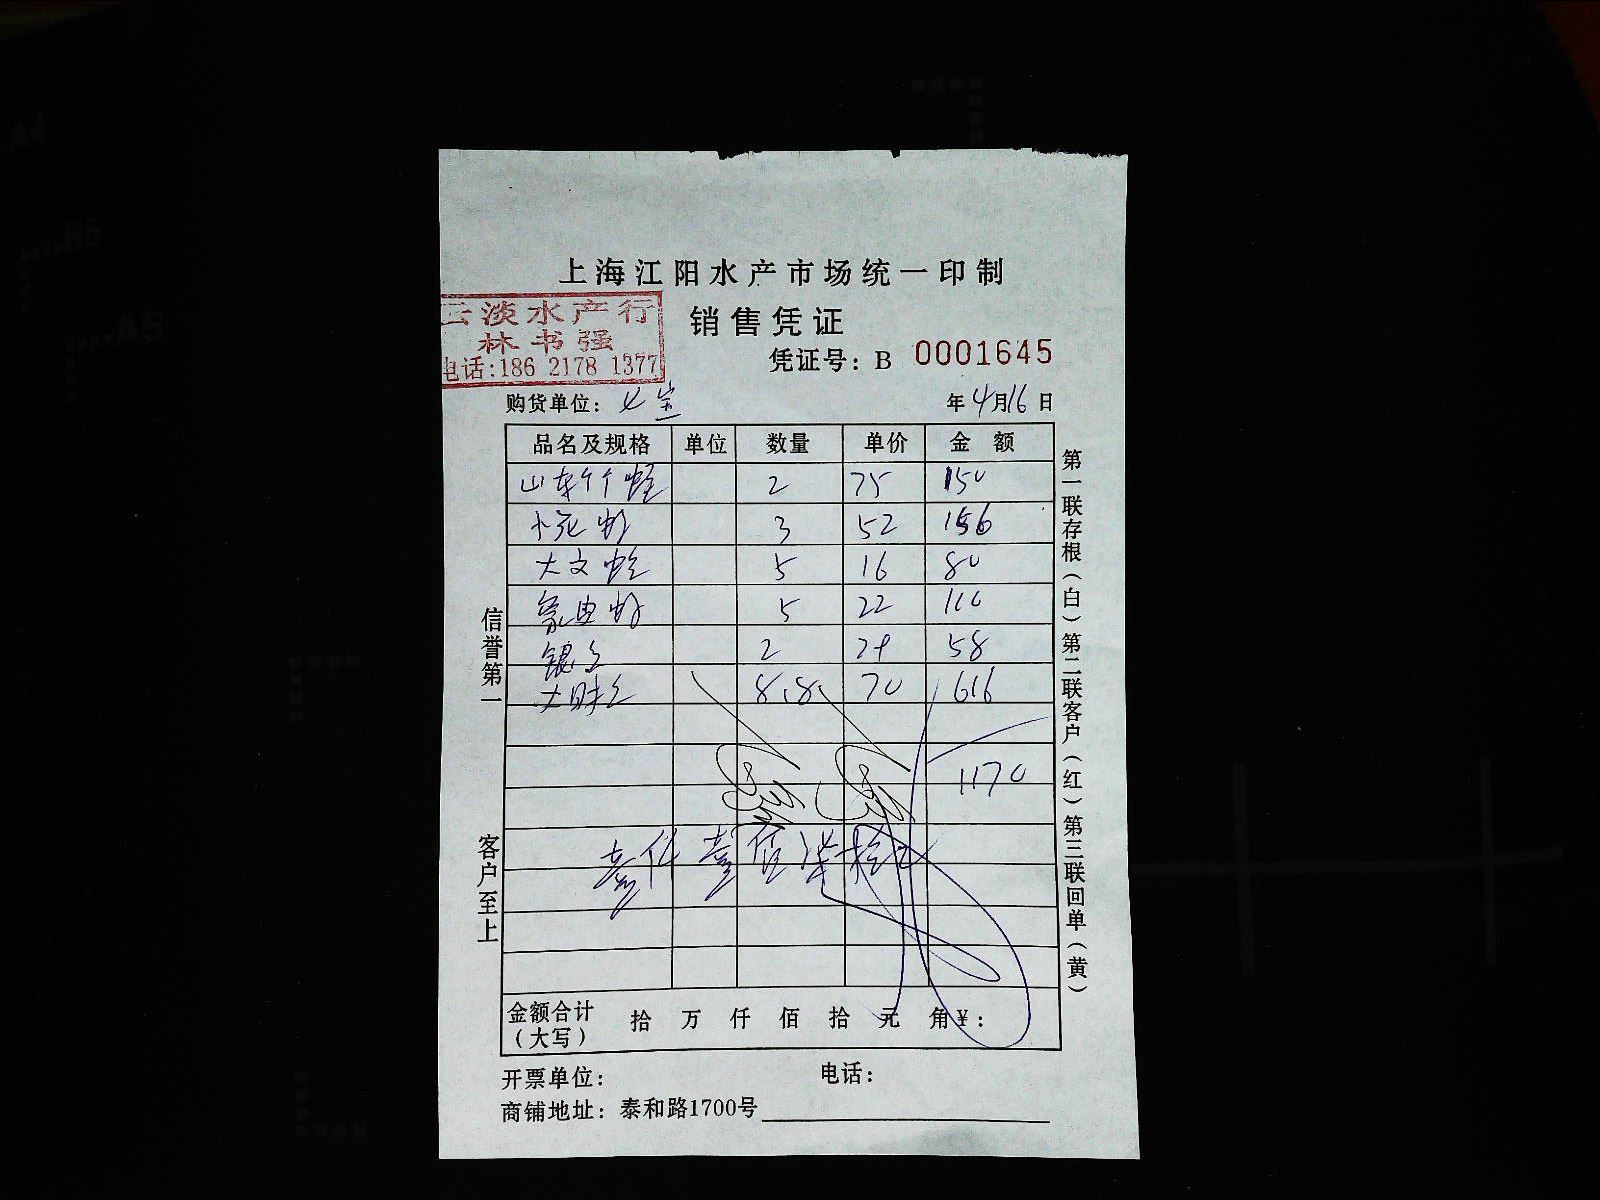 上海江阳水产市场统一印制
云淡水产行
林书强
电话:186 2178 1377
销售凭证
凭证号: B 0001645
购货单位: 七宝
年 4月16日
品名及规格 单位 数量 单价 金额
山东个个蛏 2 75 150
卜 虾 3 52 156
大文蛤 5 16 80
5 22 110
银 2 29 58
大 8.8 70 616
1170
壹仟壹佰柒拾元
金额合计
(大写) 拾 万 仟 佰 拾 元 角 ¥:
开票单位: 电话:
商铺地址: 泰和路1700号
信誉第一
客户至上
第一联存根(白)第二联客户(红)第三联回单(黄)